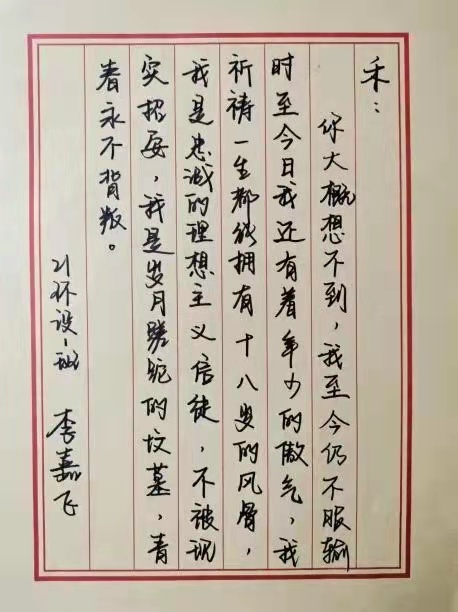 禾：
你大概想不到，我至今仍不服输
时至今日我还有着年少的傲气，我
祈祷一生都能拥有十八岁的风骨，
我是忠诚的理想主义信徒，不被现
实招安，我是岁月蹉跎的坟墓，青
春永不背叛。
21环设一班 李嘉飞